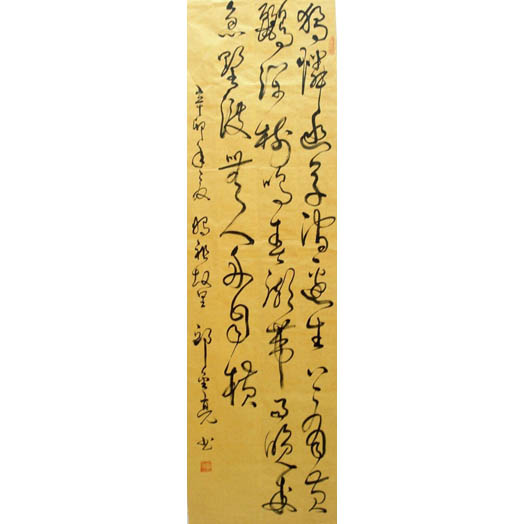 獨憐幽草澗邊生上有黃
鸝深樹鳴春潮帶雨晚來
急野渡無人舟自橫
辛卯年之夏 故里 金亮書